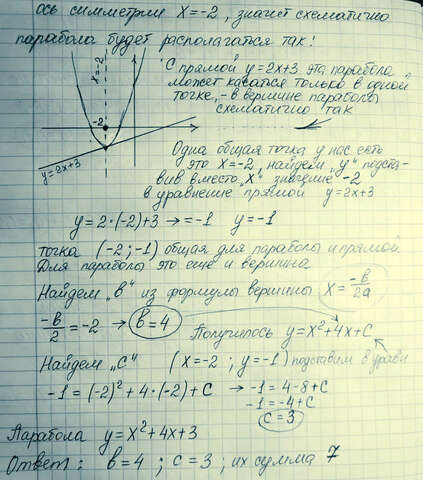 ось симметрии x=-2, значит схематично
парабола будет располагатся так!
x=-2
С прямой y=2x+3 эта парабола
может касаться только в одной
точке, - в вершине параболы
схематично так
-2
y=2x+3
Одна общая точка у нас есть
это x=-2, найдем "y" подста-
вив вместо "x" значение -2
в уравнение прямой y=2x+3
y=2·(-2)+3 → =-1 y=-1
точка (-2;-1) общая для параболы и прямой
Для параболы это еще и вершина
Найдем "в" из формулы вершины x = -в/2a
-в/2 = -2 → в=4
Получилось y=x²+4x+c
Найдем "С" (x=-2; y=-1) подставим в урав
-1=(-2)²+4·(-2)+c → -1=4-8+c
-1=-4+c
c=3
Парабола y=x²+4x+3
Ответ: в=4; c=3; их сумма 7